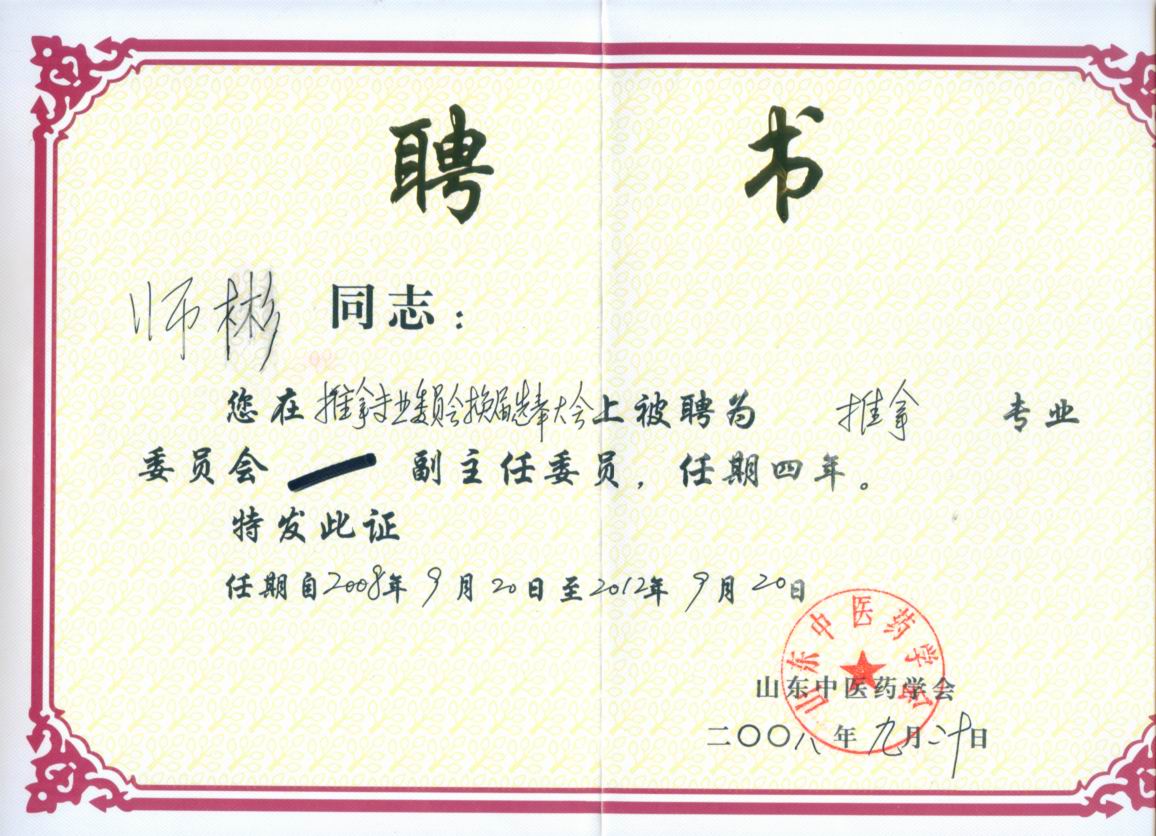 聘书
师彬 同志：
您在推拿专业委员会换届选举大会上被聘为 推拿 专业
委员会 副主任委员，任期四年。
特发此证
任期自2008年9月20日至2012年9月20日
山东中医药学会
山东中医药学会
二〇〇八年九月二十日